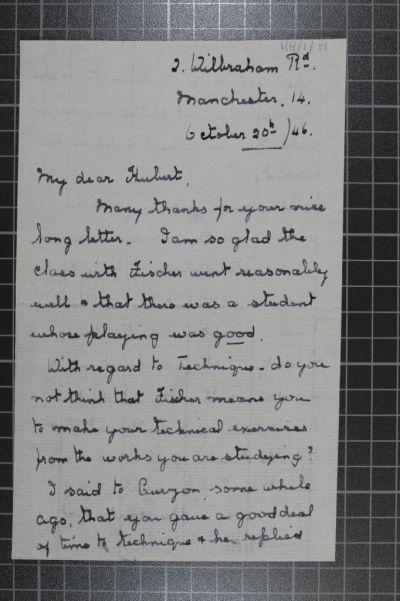 2. Wilbraham Rd.
Manchester. 14.
October 20th /46.
My dear Hubert,
Many thanks for your nice
long letter. I am so glad the
class with Fischer went reasonably
well & that there was a student
whose playing was good.
With regard to Technique - do you
not think that Fischer means you
to make your technical exercises
from the works you are studying?
I said to Curzon, some while
ago, that you gave a good deal
of time to technique & he replied